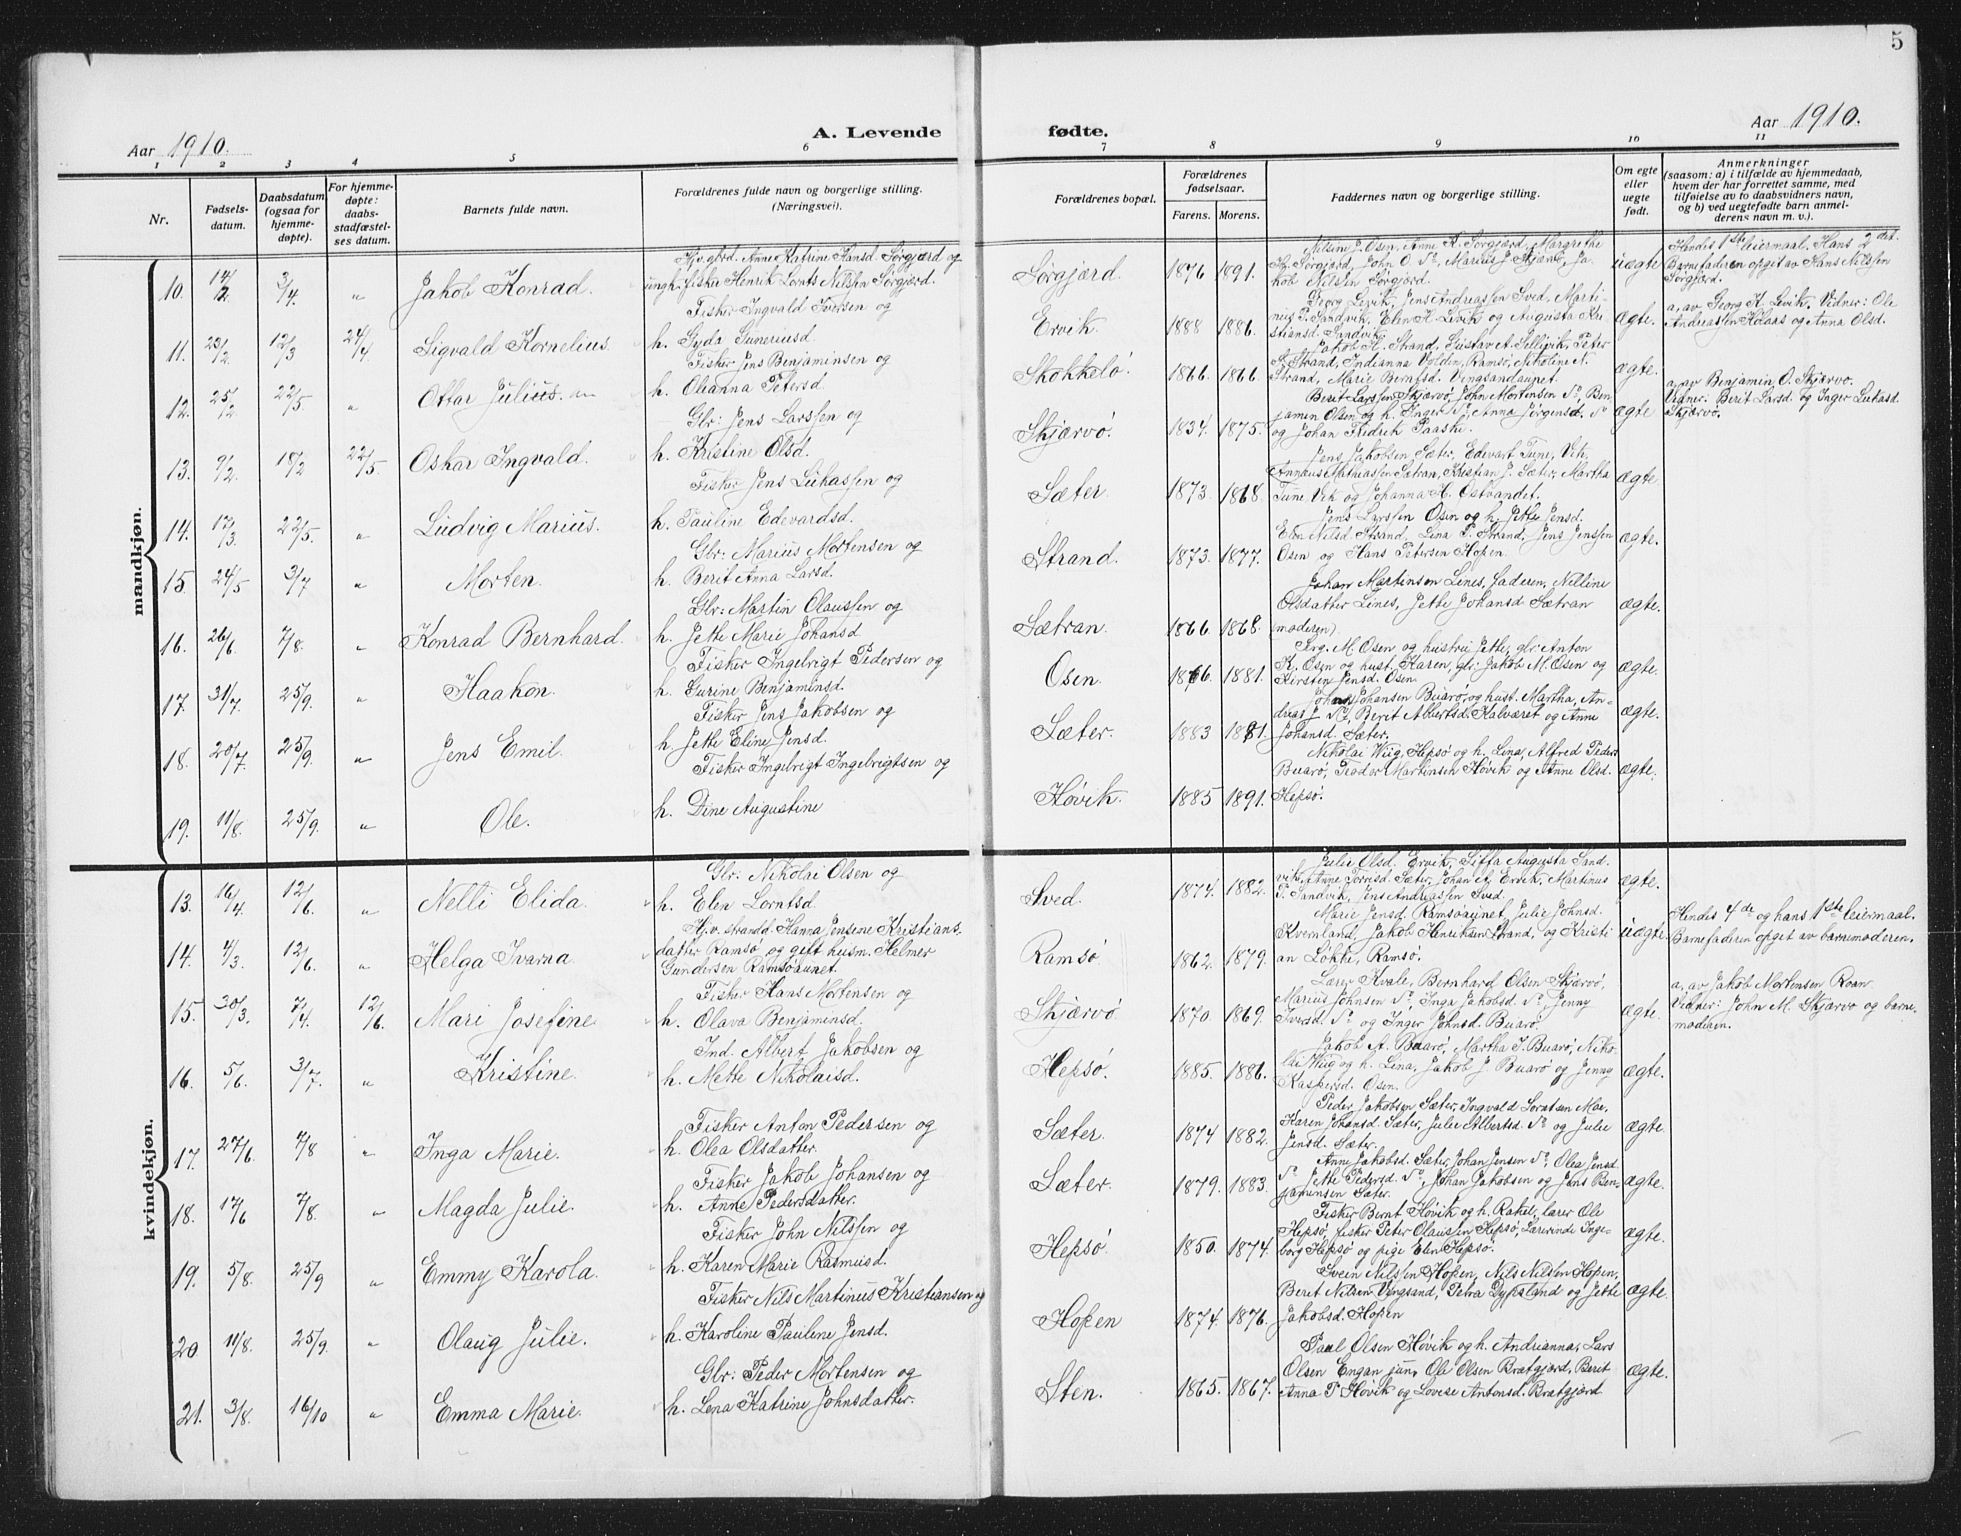 5
Aar 1910.
A. Levende
fødte.
Aar 1910.
1 2 3 4 5 6 7 8 9 10 11
Nr.
Fødsels-
datum.
Daabsdatum
(ogsaa for
hjemme-
døpte).
For hjemme-
døpte:
daabs-
stadfæstel-
ses datum.
Barnets fulde navn.
Forældrenes fulde navn og borgerlige stilling.
(Næringsvei).
Forældrenes bopæl.
Forældrenes
fødselsaar.
Farens. Morens.
Faddernes navn og borgerlige stilling.
Om egte
eller
uegte
født.
Anmerkninger
(saasom: a) i tilfælde av hjemmedaab,
hvem der har forrettet samme, med
tilføielse av to daabsvidners navn,
og b) ved uegtefødte barn anmel-
derens navn m. v.).
mandkjøn.
10. 14/2 3/4 " Jakob Konrad.
Hv. gbrd. Anne Katrine Hansd. Sørgjærd og
ungk. fisker Henrik Lorntz Nilssen Sørgjerd.
Sørgjærd 1876 1891.
Nilsine J. Osen, Anne K. Sørgjærd, Margrethe
H. Sørgjerd, John O. So, Marius J. Skjervø, Ja-
kob Nilsen Sørgjerd.
uægte
Hendes 1ste leiermaal. Hans 2det.
Barnefaderen opgit av Hans Nilssen
Sørgjerd.
11. 23/2 12/3 24/4 Sigvald Kornelius.
Fisker Ingvald Iversen og
h. Gyda Guneriusd.
Ervik. 1888 1886.
Georg Levik, Jens Andreassen Sved, Marti-
nus P. Sandvik, Elen H. Levik og Augusta Kri-
stiansd. Sandvik.
ægte.
a, av Georg H. Levik. Vidner: Ole
Andreassen Holaas og Anna Olsd.
12. 25/2 22/5 " Ottar Julius.
Fisker Jens Benjaminsen og
h. Oleanna Petersd.
Skokkelø. 1866. 1866.
Jakob H. Strand, Gustav A. Sellivik, Peter
A. Strand, Indianna Voldin, Ramsø, Nikoline N.
Strand, Marie Berntsd. Vingsandaunet.
ægte.
13. 9/2 18/2 22/5. Oskar Ingvald.
Gbr: Jens Larssen og
h. Kristine Olsd.
Skjærvø. 1834. 1875.
Berit Larssen Skjærvø, John Mortensen So, Ben-
jamen Olsen og h. Inger So, Anna Jørgensd. So
og Johan Fredrik Paaske.
ægte
a, av Benjamin O. Skjærvø.
Vidner: Berit Larsd. og Inger Lukasd.
Skjærvø.
14. 17/3 22/5. " Ludvig Marius.
Fisker Jens Lukassen og
h. Pauline Edevardsd.
Sæter. 1873. 1868.
Jens Jakobsen Sæter, Edevart Tune, Vik,
Annkus Mathiassen Sætran, Kristian J. Sæter, Martha
Tune Vik og Johanna H. Ostvandet.
ægte
15. 24/5 3/7 " Morten.
Gbr: Marius Mortensen og
h. Berit Anna Larsd.
Strand. 1873. 1877.
Jens Larssen Osen og h. Jette Jensd.
Elen Nilsd. Strand, Lina P. Strand, Jens Jenssen
Osen og Hans Petersen Hopen.
ægte.
16. 26/6 7/8. " Konrad Bernhard.
Gbr: Martin Olaussen og
h. Jette Marie Johansd
Sætran. 1866. 1868.
Johan Martinsen Lines, faderen, Nelline
Olsdatter Lines, Jette Johansd Sætran
(moderen).
ægte.
17. 31/7 25/9. " Haakon.
Fisker Ingebrigt Pedersen og
h. Gurine Benjaminsd.
Osen. 1876. 1881.
Frg. M. Osen og hustru Jette, gbr: Anton
K. Osen og hust. Karen, gbr: Jakob M. Osen og
Kirsten Jensd. Osen.
ægte.
18. 20/7 25/9. " Jens Emil.
Fisker Jens Jakobsen og
h. Jette Eline Jensd.
Sæter. 1883 1881.
Johan Johansen Buarø, og hust. Martha, An-
dreas J. So, Berit Albertsd. Kalværet og Anne
Johansd. Sæter.
ægte.
19. 11/8. 25/9. " Ole.
Fisker Ingebrigt Ingebrigtsen og
h. Dine Augustine
Høvik. 1885 1891.
Nikolai Wiig, Hepsø og h. Lina, Alfred Peders
Buarø, Teodor Martinsen Høvik og Anne Olsd.
Hepsø.
ægte.
kvindekjøn.
13. 16/4 12/6. " Nelli Elida.
Gbr: Nikolai Olsen og
h. Elen Lorntsd.
Sved. 1874. 1882.
Julie Olsd. Ervik, Siffa Augusta Sand-
vik, Anne Torrisd. Sæter, Johan A. Ervik, Martinus
P. Sandvik, Jens Andreassen Sved.
ægte.
14. 4/3. 12/6. " Helga Ivarna.
Hj.v. strandd. Hanna Jensine Kristians-
datter Ramsø og gift husm. Helmer
Gundersen Ramsøaunet.
Ramsø. 1862. 1879.
Marie Jensd. Ramsøaunet, Julie Johnsd.
Kvernland, Jakob Henriksen Strand, og Kristi
an Løkke, Ramsø.
uægte.
Hendes 4de og hans 1ste leiermaal.
Barnefaderen opget av barnemoderen.
15. 30/3. 7/4. 12/6. Mari Josefine.
Fisker Hans Mortensen og
h. Olava Benjaminsd.
Skjærvø 1870. 1869.
Lærer Kvale, Bernhard Olsen Skjærvø,
Marius Johnsen So, Inga Jakobsd. So, Jenny
Iversd. So og Inger Johnsd. Buarø.
ægte.
a, av Jakob Mortensen Roan
Vidner: John M. Skjærvø og barne-
moderen.
16. 5/6. 3/7. " Kristine.
Ind. Albert Jakobsen og
h. Mette Nikolaisd.
Hepsø. 1885. 1886.
Jakob A. Buarø, Martha J. Buarø, Niko-
lai Wiig og h. Lina, Jakob J. Buarø og Jenny
Kaspersd. Osen.
ægte.
17. 27/6. 7/8 " Inga Marie.
Fisker Anton Pedersen og
h. Olea Olsdatter.
Sæter. 1874 1882.
Peder Jakobsen Sæter, Ingvald Lorntsen Moe,
Karen Johansd. Sæter, Julie Albertsd. So og Julie
Jensd. Sæter.
ægte
18. 17/6 7/8. " Magda Julie.
Fisker Jakob Johansen og
h. Anne Pedersdatter.
Sæter. 1879. 1883.
Anne Jakobsd. Sæter, Johan Jensen So, Olea Jensd.
So, Jette Pedersd. So, Johan Jakobsen og Jens Ben-
jaminsen Sæter.
ægte.
19. 5/8. 25/9 " Emmy Karola.
Fisker John Nilssen og
h. Karen Marie Rasmusd.
Hepsø. 1850. 1874.
Fisker Bernt Høvik og h. Rakel, lærer Ole
Hepsø, fisker Peter Olaussen Hepsø, Lærerinde Inge-
borg Hepsø og pige Elen Hepsø.
ægte.
20 11/8. 25/9. " Olaug Julie.
Fisker Nils Martinus Kristiansen og
h. Karoline Paulene Jensd.
Hopen 1874. 1876.
Svein Nilssen Hopen, Nils Nilsen Hopen,
Berit Nilsen Vingsand, Petra Dypsland og Jette
Jakobsd. Hopen
ægte.
21. 3/8. 16/10 " Emma Marie.
Gbr: Peder Mortensen og
h. Lena Katrine Johnsdatter.
Sten. 1865. 1867.
Paul Olsen Høvik og h. Andrianna, Lars
Olsen Engan jun, Ole Olsen Brætgjerd, Berit
Anna P. Høvik og Lovise Antonsd. Brætgjerd
ægte.